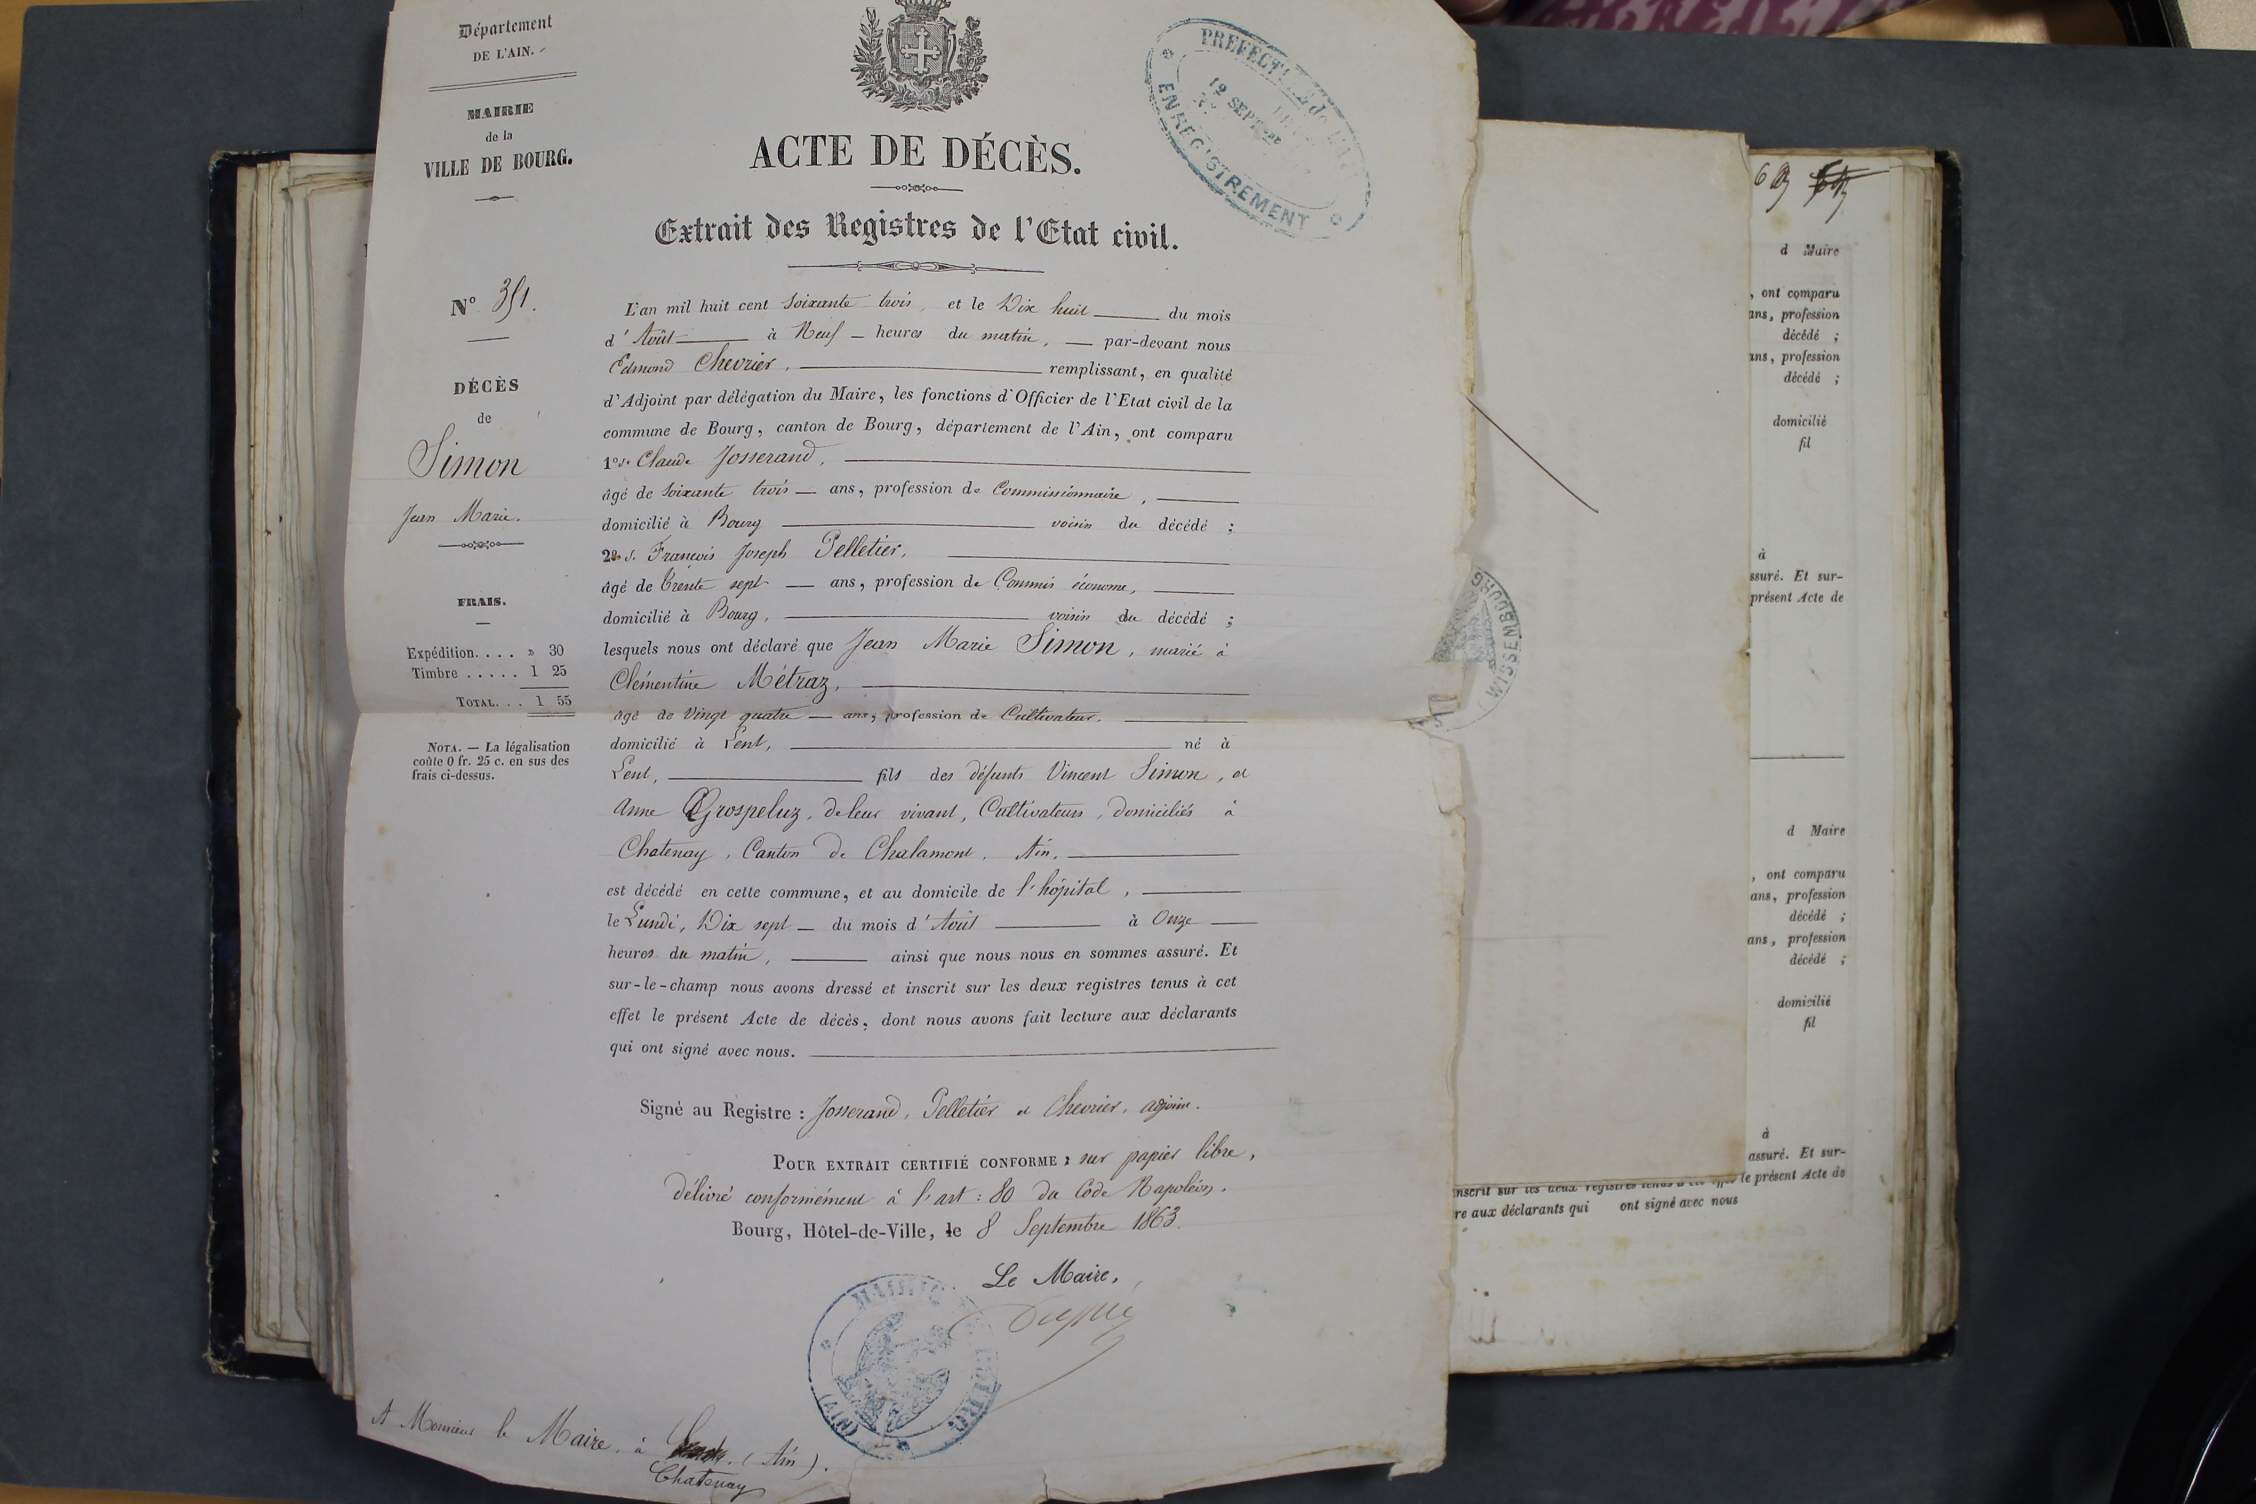 Département
DE L'AIN.
MAIRIE
de la
VILLE DE BOURG.
N° 351.
DÉCÈS
de
Simon
Jean Marie.
FRAIS.
Expédition. . . . » 30
Timbre . . . . . 1 25
TOTAL. . . 1 55
NOTA. — La légalisation
coûte 0 fr. 25 c. en sus des
frais ci-dessus.
ACTE DE DÉCÈS.
Extrait des Registres de l'Etat civil.
L'an mil huit cent soixante trois, et le Dix huit du mois
d'Août à Neuf heures du matin, par-devant nous
Edmond Chevrier, remplissant, en qualité
d'Adjoint par délégation du Maire, les fonctions d'Officier de l'Etat civil de la
commune de Bourg, canton de Bourg, département de l'Ain, ont comparu
1° s. Claude Josserand,
âgé de soixante trois ans, profession de Commissionnaire,
domicilié à Bourg voisin du décédé ;
2° s. François Joseph Pelletier,
âgé de trente sept ans, profession de Commis économe,
domicilié à Bourg, voisin du décédé ;
lesquels nous ont déclaré que Jean Marie Simon, marié à
Clémentine Métraz,
âgé de Vingt quatre ans, profession de Cultivateur,
domicilié à Lent, né à
Lent, fils des défunts Vincent Simon, et
Anne Grospeluz, de leur vivant, Cultivateurs, domiciliés à
Chatenay, Canton de Chalamont, Ain.
est décédé en cette commune, et au domicile de l'hôpital,
le Lundi, Dix sept du mois d'Août à Onze
heures du matin, ainsi que nous nous en sommes assuré. Et
sur-le-champ nous avons dressé et inscrit sur les deux registres tenus à cet
effet le présent Acte de décès, dont nous avons fait lecture aux déclarants
qui ont signé avec nous.
Signé au Registre : Josserand, Pelletier et Chevrier, adjoint.
POUR EXTRAIT CERTIFIÉ CONFORME : sur papier libre,
délivré conformément à l'art : 80 du Code Napoléon.
Bourg, Hôtel-de-Ville, le 8 Septembre 1863.
Le Maire,
A Monsieur le Maire, à (Ain).
Chatenay
PREFECTURE de
12 SEPT
ENREGISTREMENT
MAIRIE
BOURG
(AIN)
WISSEMBOURG
d Maire
, ont comparu
ans, profession
décédé ;
ans, profession
décédé ;
domicilié
fil
à
ssuré. Et sur-
présent Acte de
d Maire
, ont comparu
ans, profession
décédé ;
ans, profession
décédé ;
domicilié
fil
à
assuré. Et sur-
inscrit sur les deux registres tenus à cet effet le présent Acte de
re aux déclarants qui ont signé avec nous